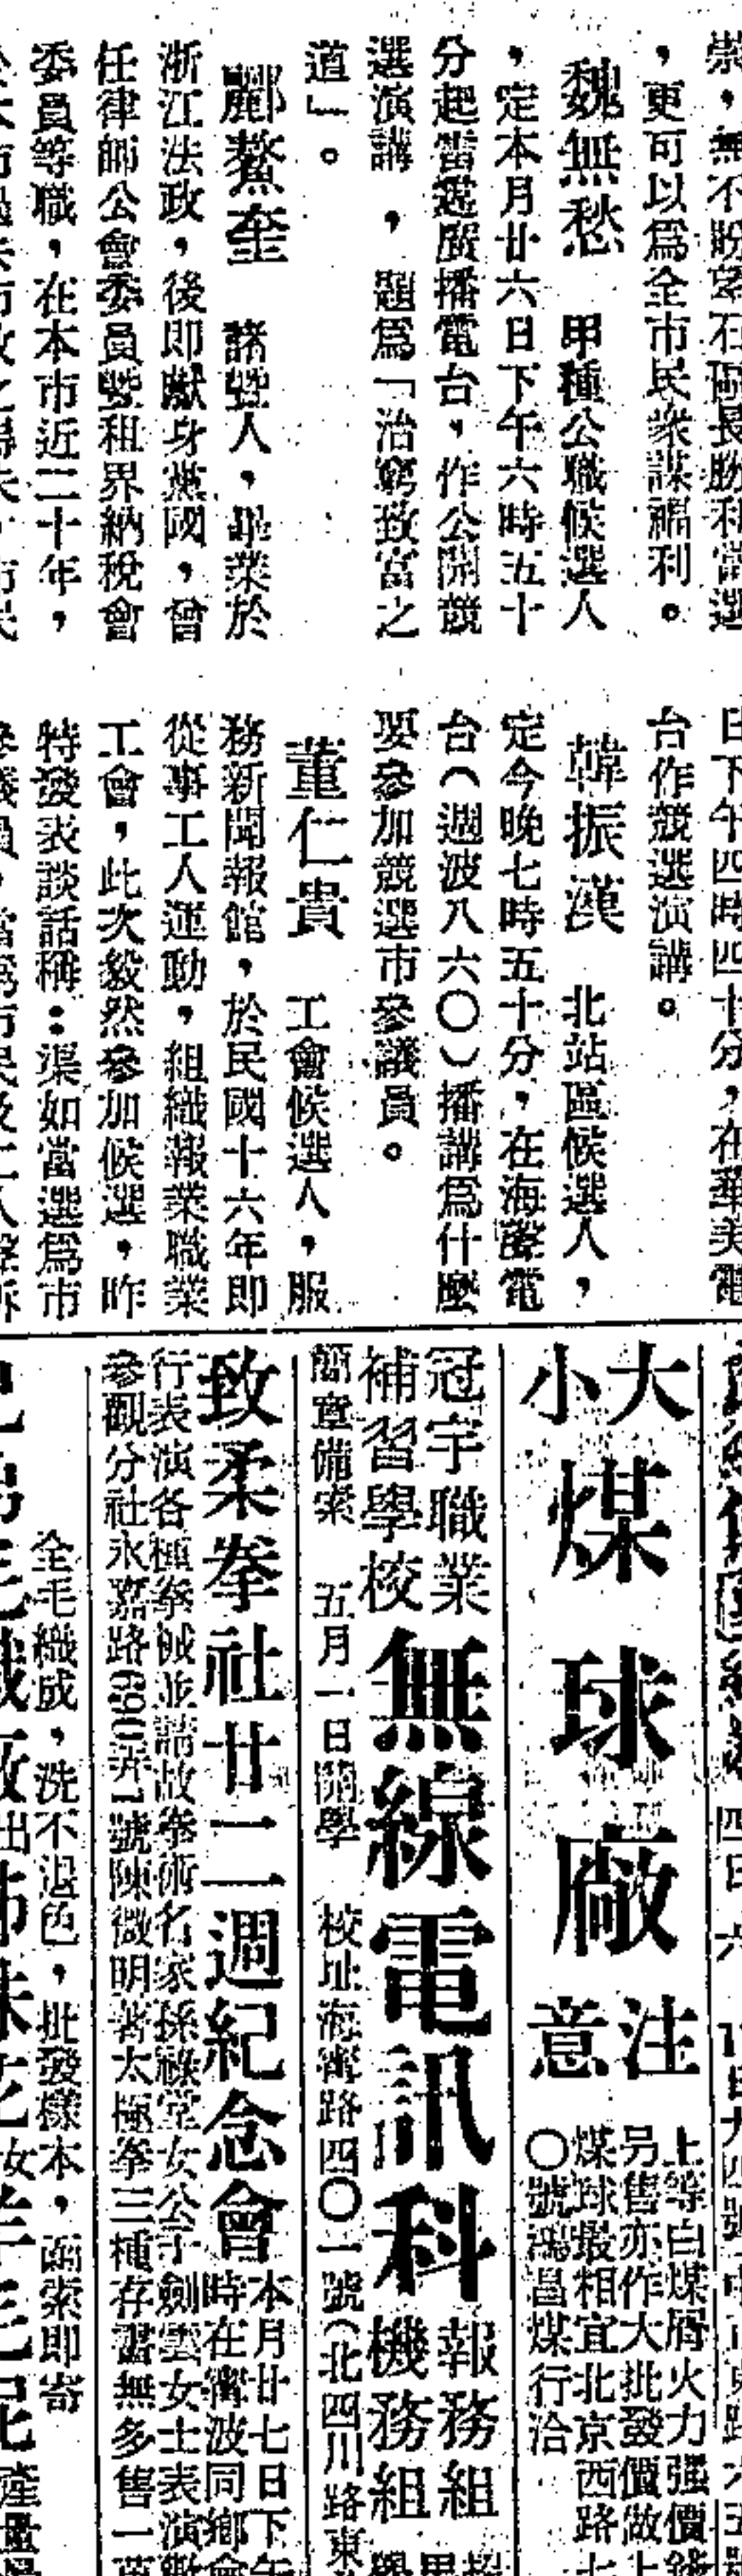 崇，無不盼望石區長勝利當選
，更可以爲全市民衆謀福利。
魏無愁　甲種公職候選人
，定本月廿六日下午六時五十
分起當選廣播電台，作公開競
選演講，題爲「治窮致富之
道」。
酈鰲奎　諸曁人，畢業於
浙江法政，後即獻身黨國，曾
任律師公會委員曁租界納稅會
委員等職，在本市近二十年，
日下午四時四十分，在華美電
台作競選演講。
韓振漢　北站區候選人，
定今晚七時五十分，在海電
台（週波八六〇）播講爲什麼
要參加競選市參議員。
董仁貴　工會候選人，服
務新聞報館，於民國十六年即
從事工人運動，組織報業職業
工會，此次毅然參加候選，昨
特發表談話稱：渠如當選爲市
參議員，當爲市民及工人
大小
煤球廠
注意
上等白煤屑火力强價
另售亦作大批發價做上
煤球最相宜北京西路七
〇號鴻昌煤行洽
冠宇職業
補習學校
無線電訊科
報務組
機務組
簡章備索　五月一日開學　校址海甯路四〇一號（北四川路東
致柔拳社廿二週紀念會
本月廿七日下午
時在甯波同鄉會
行表演各種拳械並請故拳術名家孫祿堂女公子劍雲女士表演
參觀分社永嘉路690弄1號陳微明著太極拳三種存書無多售一
全毛織成，洗不退色，批發樣本，函索即寄